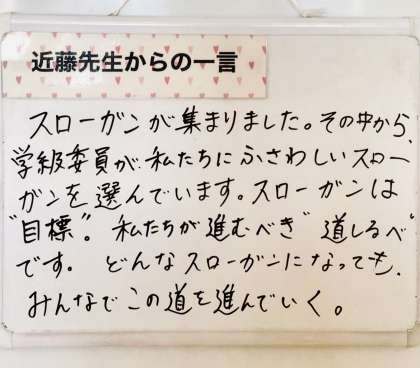 近藤先生からの一言
スローガンが集まりました。その中から、
学級委員が、私たちにふさわしいスロー
ガンを選んでいます。スローガンは
"目標"。私たちが進むべき"道しるべ"
です。どんなスローガンになっても、
みんなでこの道を進んでいく。